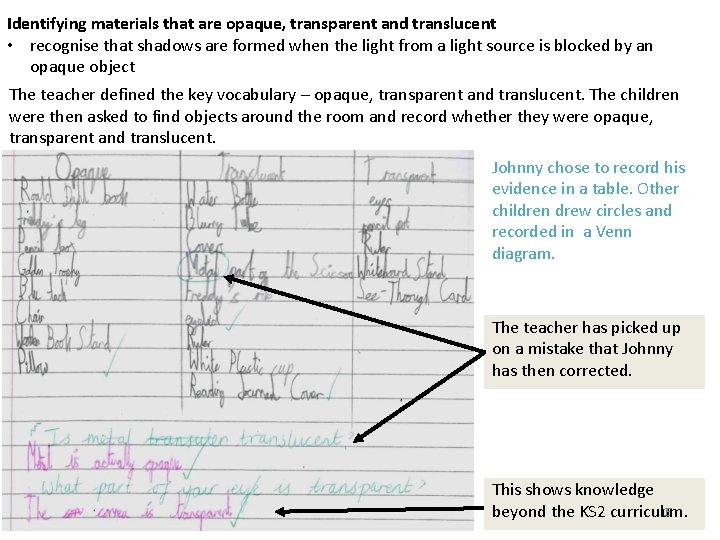 Identifying materials that are opaque, transparent and translucent
• recognise that shadows are formed when the light from a light source is blocked by an
opaque object
The teacher defined the key vocabulary – opaque, transparent and translucent. The children
were then asked to find objects around the room and record whether they were opaque,
transparent and translucent.
Opaque Translucent Transparent
Roald Dahl book Water Bottle eyes
leg Blurry pencil pot
Pencil covers Ruler
Golden Trophy Metal part of the Scissors Whiteboard Stand
Blue tack Freddy's See-Through Card
Chair eyelid
Book Stand Ruler
Pillow White Plastic cup
Reading Journal Cover
Is metal translucent?
Metal is actually opaque
What part of your eye is transparent?
The cornea is transparent
Johnny chose to record his
evidence in a table. Other
children drew circles and
recorded in a Venn
diagram.
The teacher has picked up
on a mistake that Johnny
has then corrected.
This shows knowledge
beyond the KS2 curriculum.